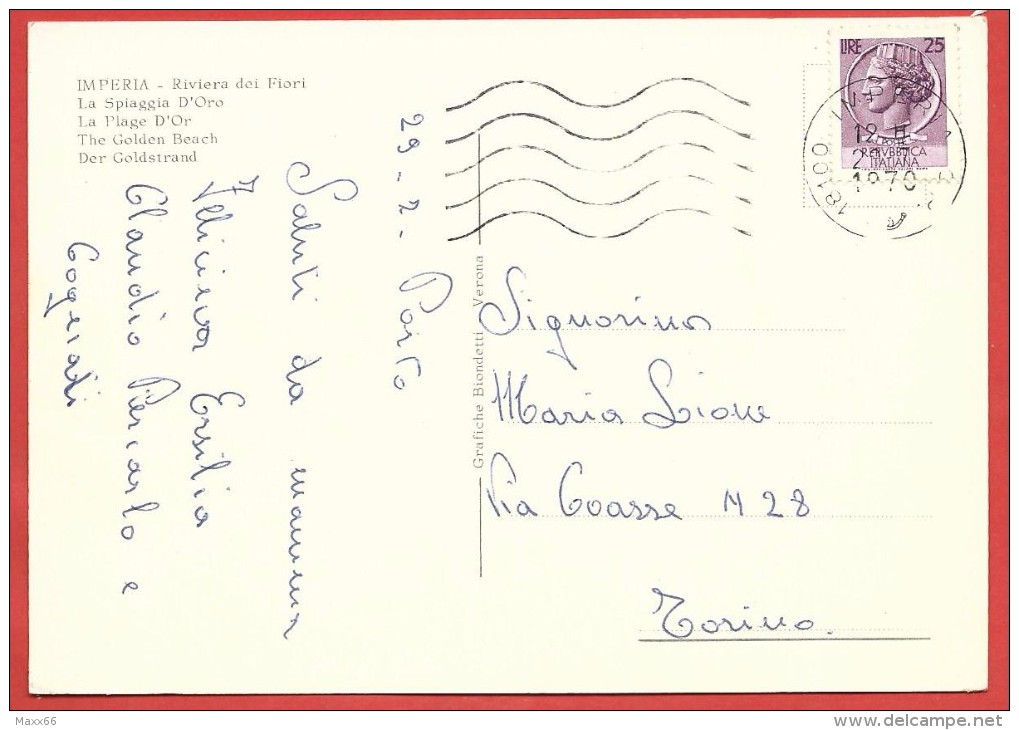 IMPERIA - Riviera dei Fiori
La Spiaggia D'Oro
La Plage D'Or
The Golden Beach
Der Goldstrand
29 - 2 - Porto
Saluti da mamma
Ersilia
Claudio Piercarlo e
Grafiche Biondetti Verona
LIRE 25
POSTE
REPVBBLICA
ITALIANA
18100 IMPERIA
12 H
1970
Signorina
Maria Lione
Via Coasse N 28
Torino.
Maxx66
www.delcampe.net